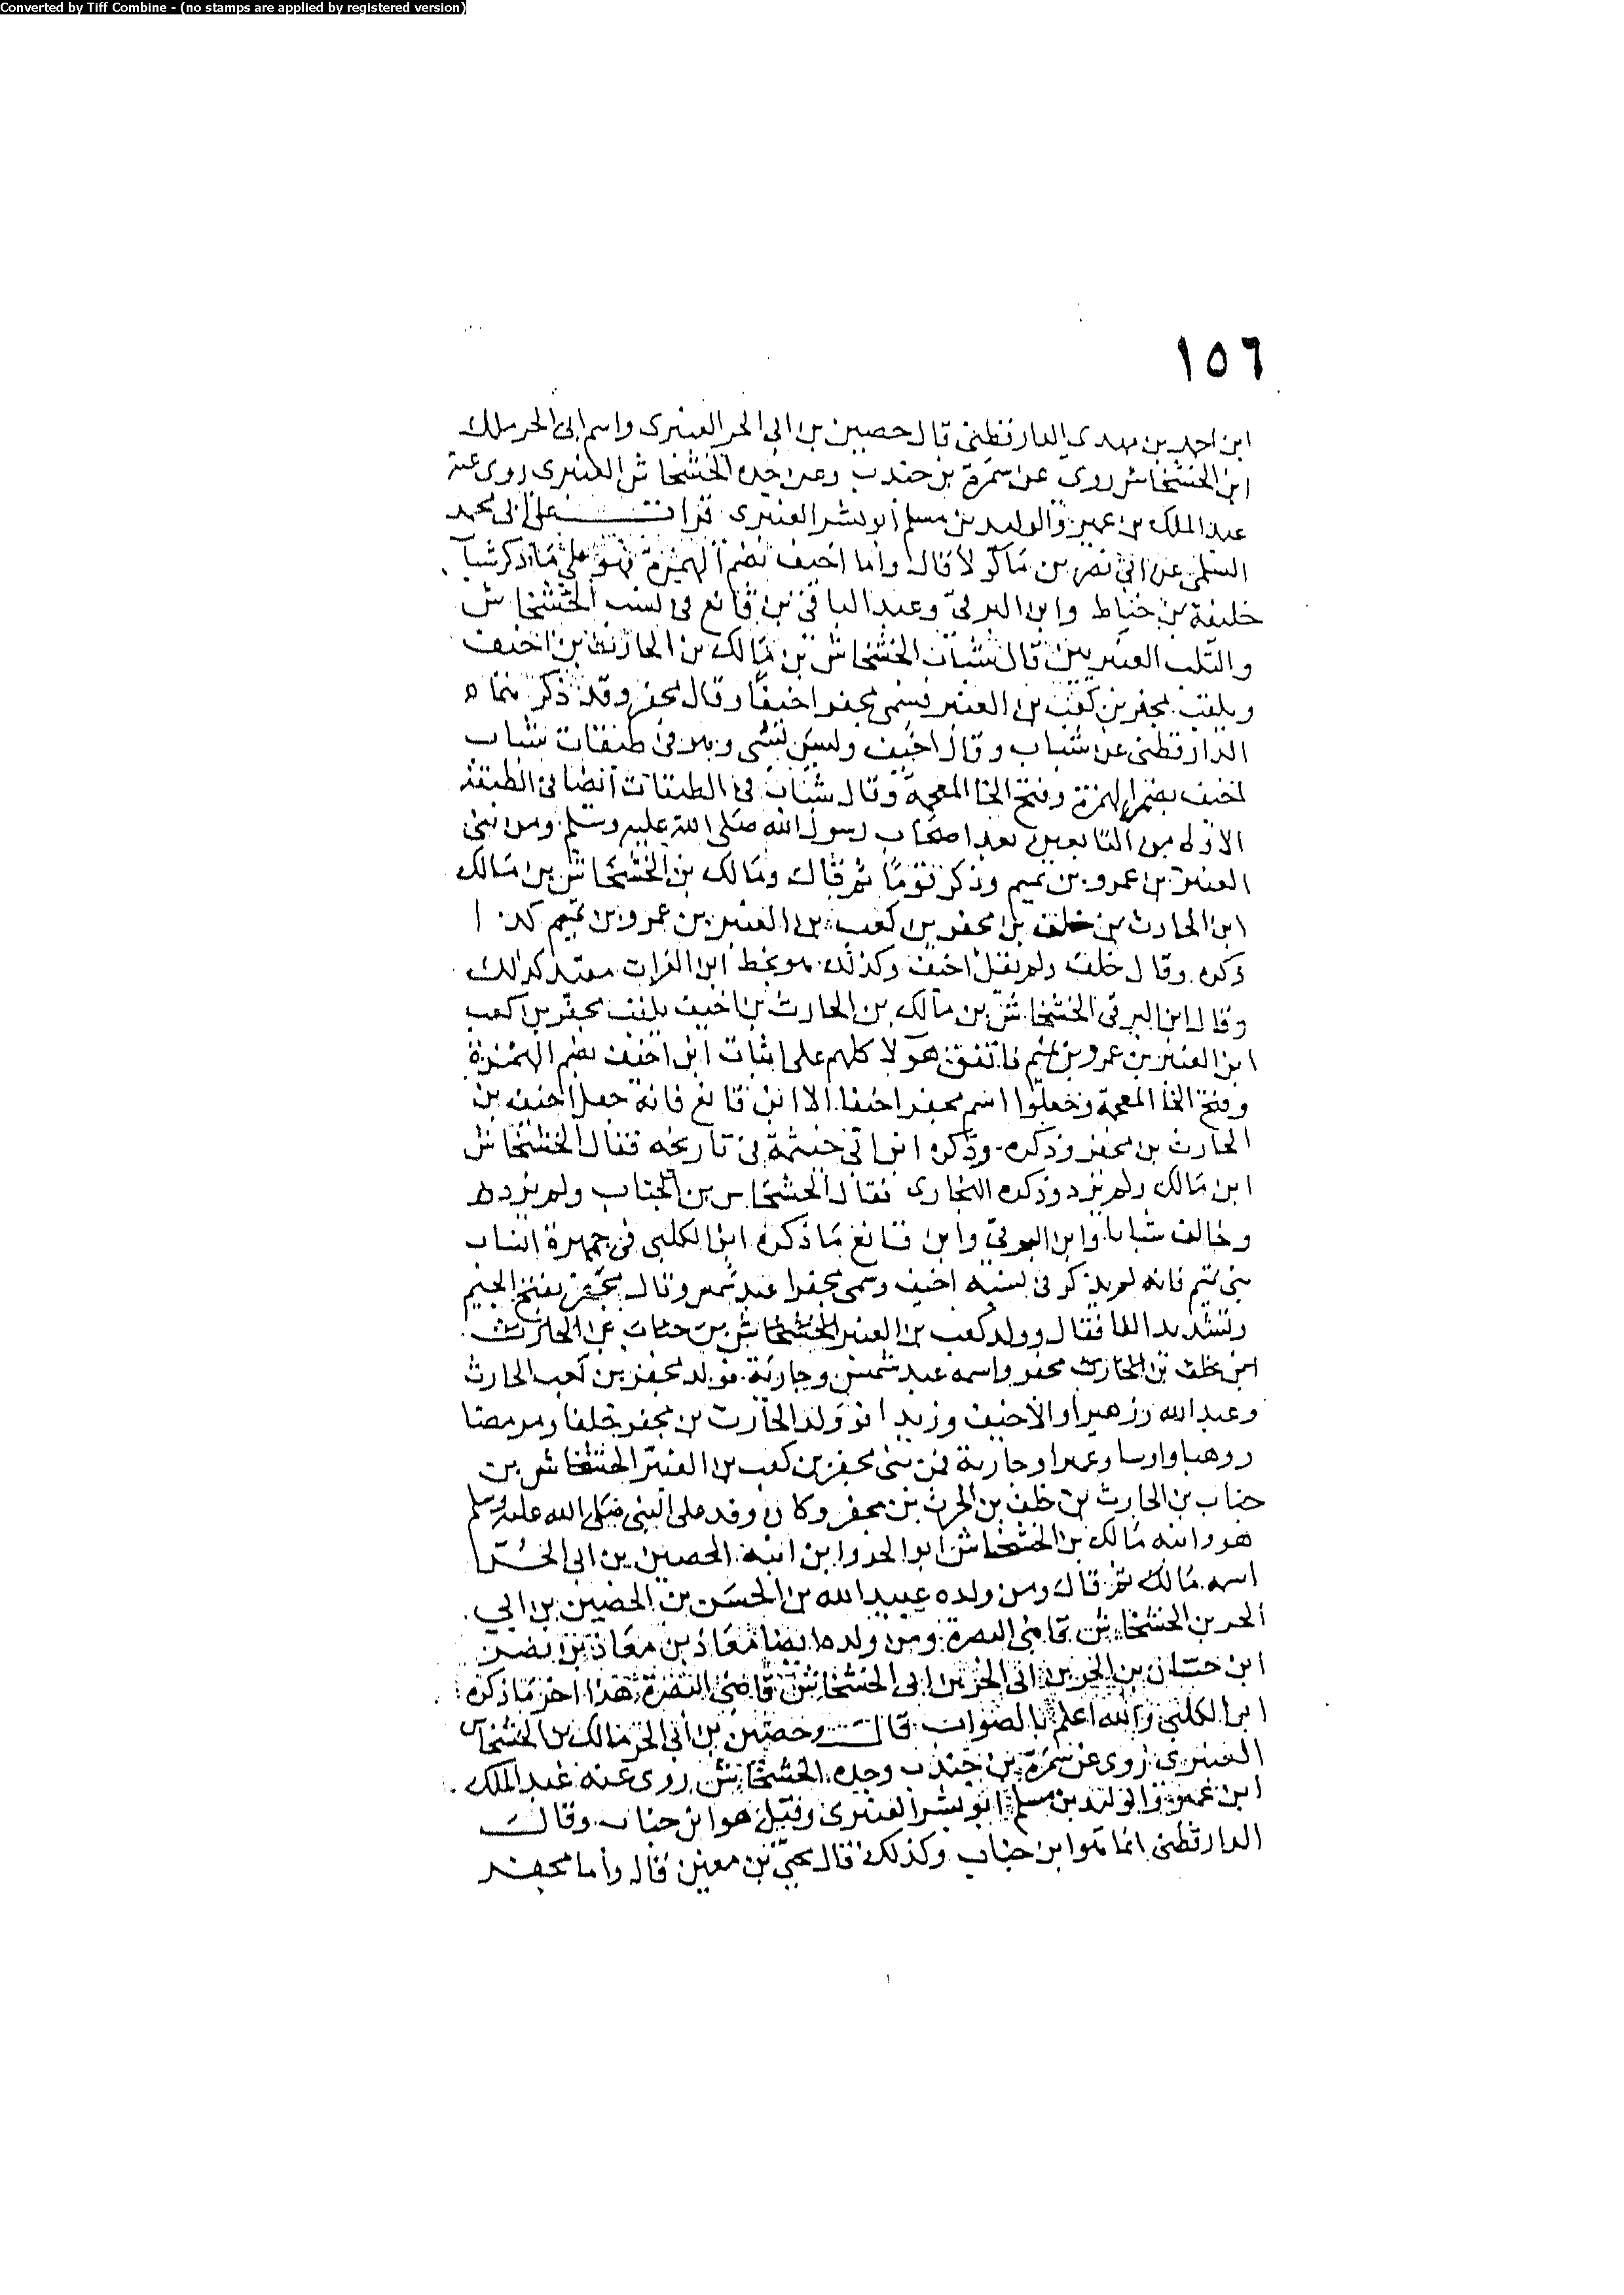 Converted by Tiff Combine - (no stamps are applied by registered version)
١٥٦
ابن احمد بن مهدي الدارقطنى قال حصين بن ابى الحر العنبرى واسم ابى الحر ملك
ابن الخشخاش روى عن سمرة بن جندب وعن جده الخشخاش العنبرى روى عنه
عبد الملك بن عمير والوليد بن مسلم أبو بشر العنبرى قرات على ابى محمد
السلمى عن ابى نصر بن ماكولا قال وأما اخيف بضم الهمزة فهو على ما ذكر شباب
خليفة بن خياط وابن البرقى وعبد الباقى بن قانع فى نسب الخشخاش
والتلب العنبريين قال شباب الخشخاش بن مالك بن الحارث بن اخيف
ويلقب مجفر بن كعب بن العنبر فسمى مجفرا اخيفا وقال مجفر وقد ذكر
الدارقطنى عن شباب وقال اخيف وليس بشى وهو فى طبقات شباب
اخيف بضم الهمزة وفتح الخا المعجمة وقال شباب فى الطبقات أيضا فى الطبقة
الاولى من التابعين بعد اصحاب رسول الله صلى الله عليه وسلم ومن بنى
العنبر بن عمرو بن تميم وذكر قوما ثم قال ومالك بن الخشخاش بن مالك
ابن الحارث بن خلف بن مجفر بن كعب بن العنبر بن عمرو بن تميم كذا
ذكره وقال خلف ولم يقل اخيف وكذلك هو بخط ابن الفرات كذلك
وقال ابن البرقى الخشخاش بن مالك بن الحارث بن اخيف يلقب مجفر بن كعب
ابن العنبر بن عمرو بن تميم فاتفق هولا كلهم على اثبات ابن اخيف بضم الهمزة
وفتح الخا المعجمة وجعلوا اسم مجفر اخيفا الا ابن قانع فانه جعل اخيف بن
الحارث بن مجفر وذكره وذكره ابن ابى خيثمة فى تاريخه فقال الخشخاش
ابن مالك ولم يزد وذكره البخارى فقال الخشخاس بن الجناب ولم يزد
وخالف شبابا وابن البرقى وابن قانع ما ذكره ابن الكلبى فى جمهرة انساب
بنى تميم فانه لم يذكر فى نسبه اخيف وسمى مجفرا عبد شمس وقال مجفر بفتح الجيم
وتشديد الفا فقال وولد كعب بن العنبر الخشخاش بن جناب بن الحارث
ابن خلف بن الحارث مجفر واسمه عبد شمس وحارثة فولد مجفر بن كعب الحارث
وعبد الله وزهيرا والاخيف وزيدا فولد الحارث بن مجفر خلفا ومرمضا
ووهبا واوسا وعمرا وحارثة فمن بنى مجفر بن كعب بن العنبر الخشخاش بن
جناب بن الحارث بن خلف بن الحرث بن مجفر وكان وفد على النبى صلى الله عليه وسلم
هو وابنه مالك بن الخشخاش ابو الحر وابن ابنه الحصين بن ابى الحر
اسمه مالك ثم قال ومن ولده عبيد الله بن الحسن بن الحصين بن ابي
الحر بن الخشخاش قاضى البصرة ومن ولده ايضا معاذ بن معاذ بن نصر
ابن حسان بن الحر بن ابى الحر بن ابى الخشخاش قاضى البصرة هذا اخر ما ذكره
ابن الكلبى والله اعلم بالصواب قال وحصين بن أبى الحر مالك بن الخشخاش
العنبرى روى عن سمرة بن جندب وجده الخشخاش روى عنه عبد الملك
ابن عمير والوليد بن مسلم ابو بشر العنبرى وقيل هو ابن جناب وقال
الدارقطنى انما هو ابن جناب وكذلك قال يحيى بن معين قال وأما مجفر